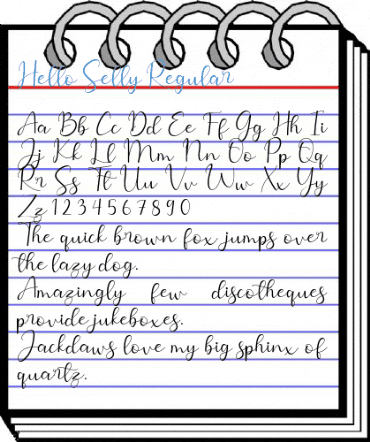 Hello Selly Regular
Aa Bb Cc Dd Ee Ff Gg Hh Ii
Jj Kk Ll Mm Nn Oo Pp Qq
Rr Ss Tt Uu Vv Ww Xx Yy
Zz 1234567890
The quick brown fox jumps over
the lazy dog.
Amazingly few discotheques
provide jukeboxes.
Jackdaws love my big sphinx of
quartz.